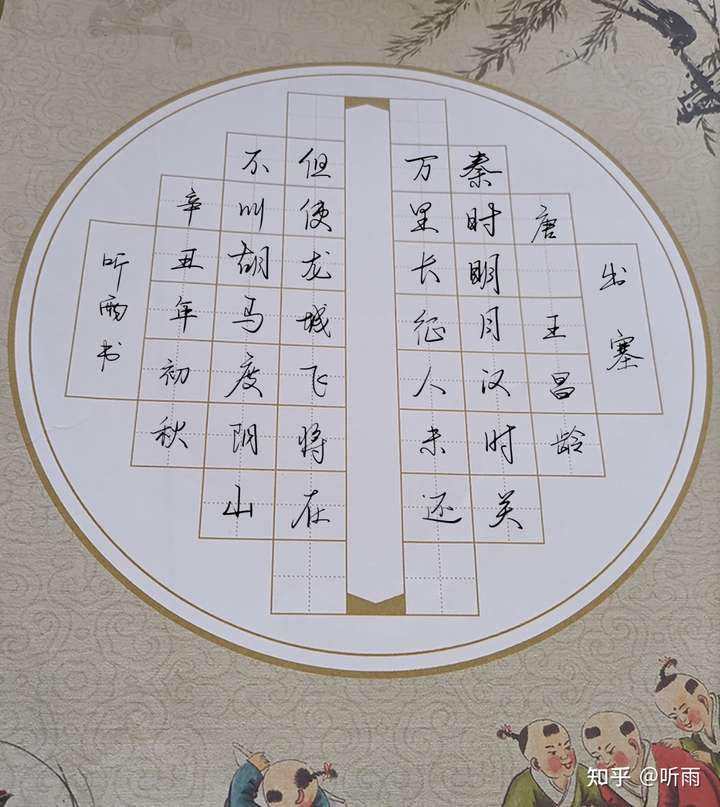 出塞
唐 王昌龄
秦时明月汉时关
万里长征人未还
但使龙城飞将在
不叫胡马度阴山
辛丑年初秋
听雨书
知乎 @听雨